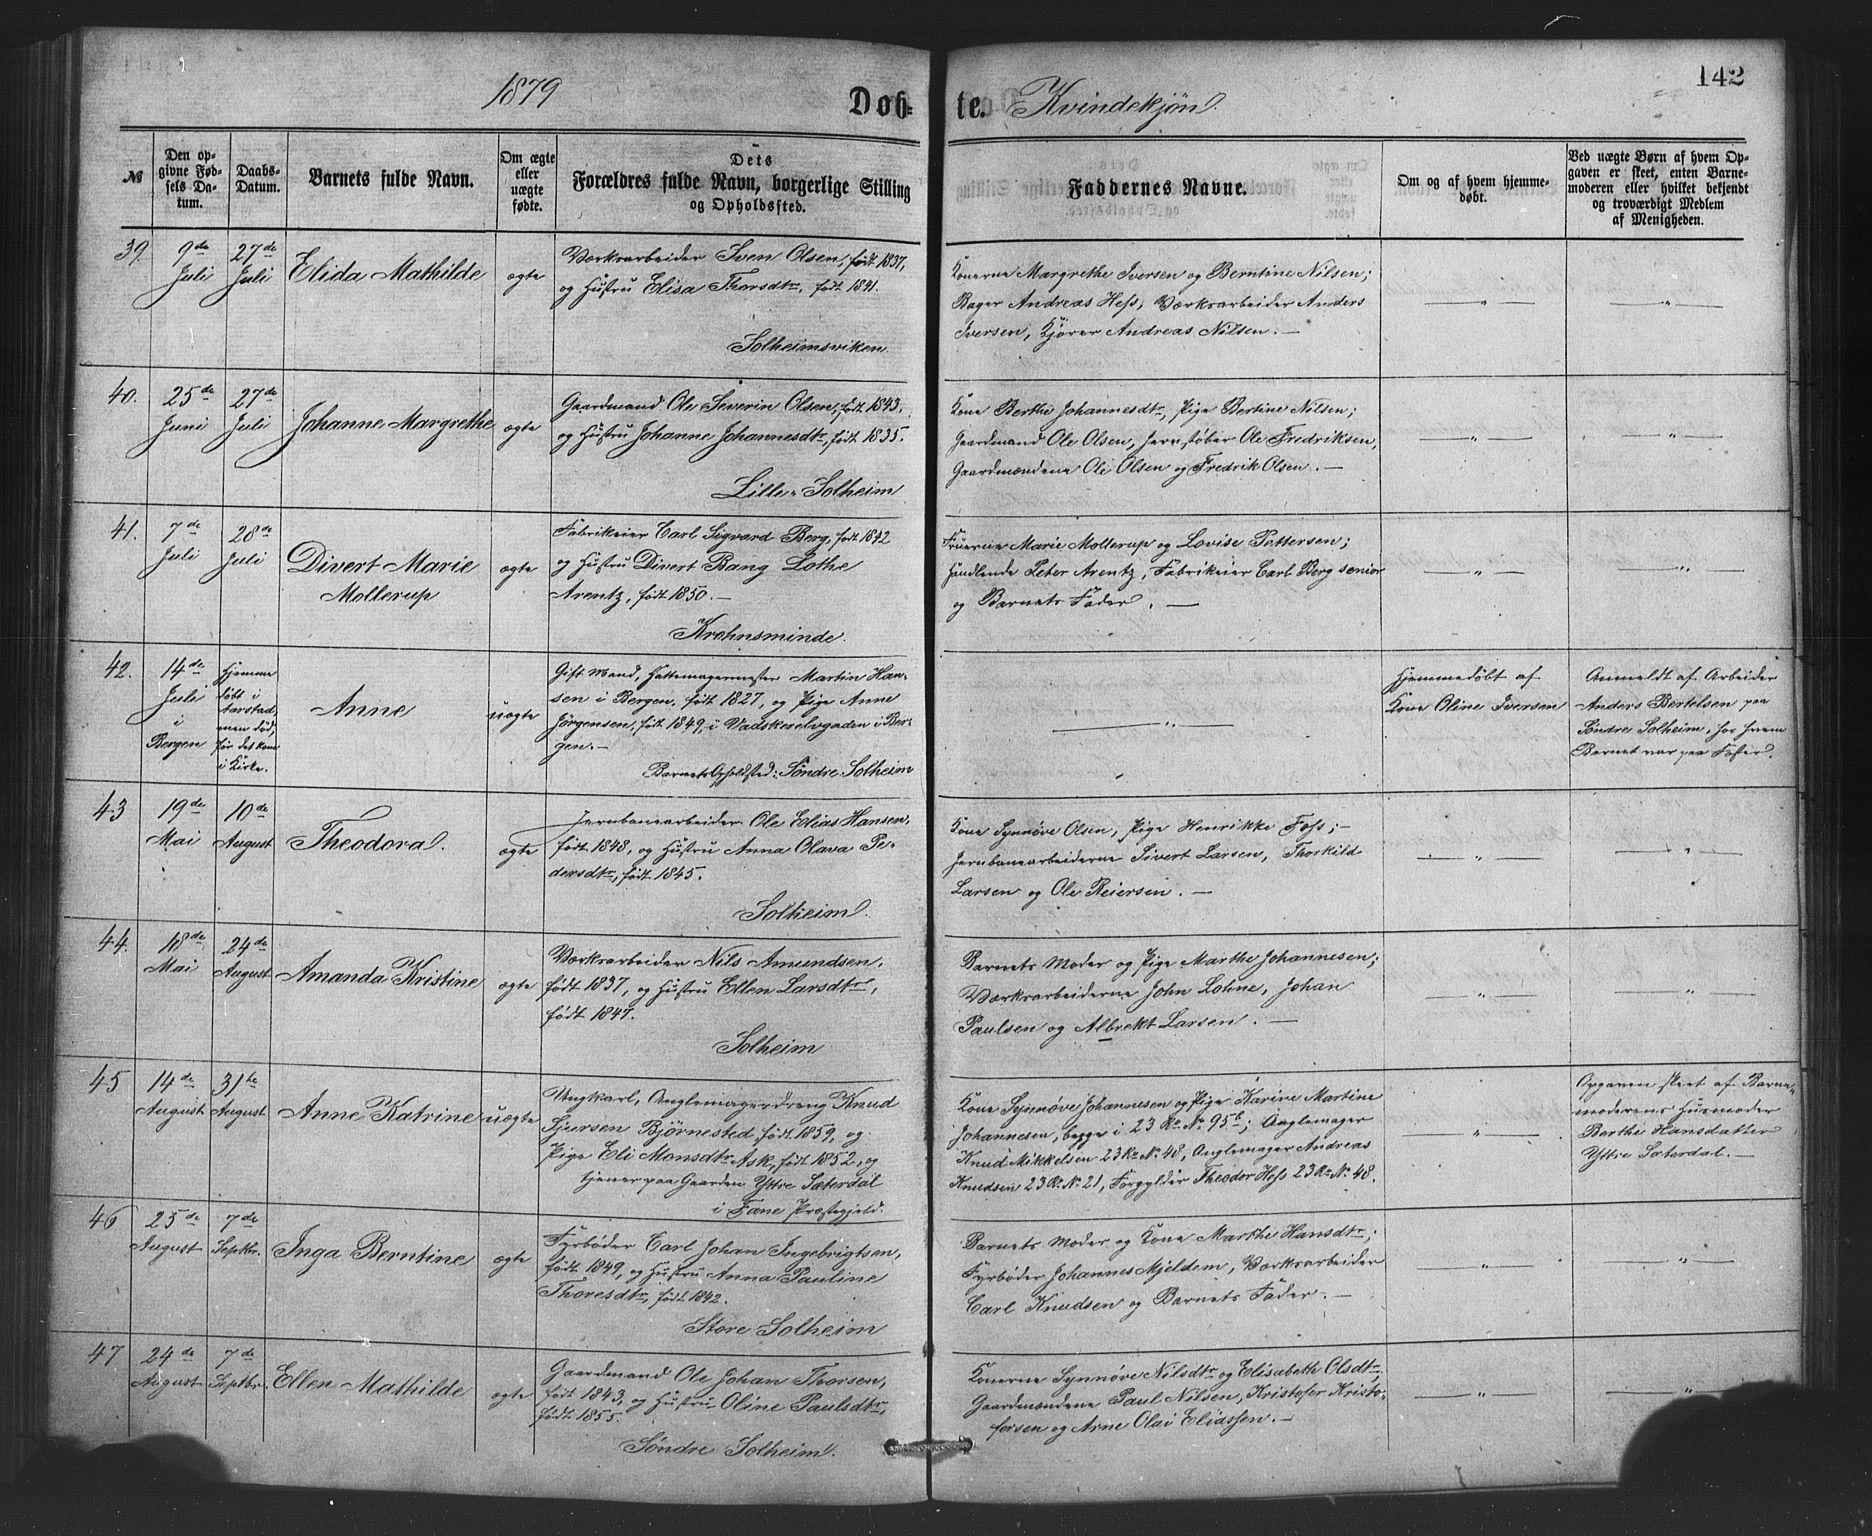 1879
Døb-
te. Kvindekjøn.
142
№
Den op-
givne Fød-
sels Da-
tum.
Daabs-
Datum.
Barnets fulde Navn.
Om ægte
eller
uægte
fødte.
Dets
Forældres fulde Navn, borgerlige Stilling
og Opholdssted.
Faddernes Navne.
Om og af hvem hjemme-
døbt.
Ved uægte Børn af hvem Op-
gaven er skeet, enten Barne-
moderen eller hvilket bekjendt
og troværdigt Medlem
af Menigheden.
39.
9de
Juli
27de
Juli
Elida Mathilde
ægte
Værksarbeider Sven Olsen, født 1837,
og Hustru Elisa Thorsdtr, født 1841.
Solheimsviken
Konerne Margrethe Iversen og Berntine Nilsen;
Bager Andreas Hess, Værksarbeider Anders
Iversen, Kjører Andreas Nilsen. —
— " —
— " —
40.
25de
Juni
27de
Juli
Johanne Margrethe
ægte
Gaardmand Ole Severin Olsen, født 1843,
og Hustru Johanne Johannesdtr, født 1835.
Lille-Solheim
Kone Berthe Johannesdtr, Pige Bertine Nilsen;
Gaardmand Ole Olsen, Jernstøber Ole Fredriksen,
Gaardmændene Ole Olsen og Fredrik Olsen. —
— " —
— " —
41.
7de
Juli
28de
Juli
Divert Marie
Mollerup
ægte
Fabrikeier Carl Sigvard Berg, født 1842
og Hustru Divert Bang Lothe
Arentz, født 1850. —
Krohnsminde.
Fruerne Marie Mollerup og Lovise Pettersen;
Handlende Peter Arentz, Fabrikeier Carl Berg senior
og Barnets Fader. —
— " —
— " —
42.
14de
Juli
i
Bergen
Hjemme
døbt i
Aarstad,
men død,
før det kom
i Kirke.
Anne
uægte
Gift Mand, Hattemagermester Martin Han-
sen i Bergen, født 1827, og Pige Anne
Jörgensen, født 1849, i Vadskerelvgaden i Ber-
gen. —
Barnets Opholdsted: Söndre Solheim
— " —
Hjemmedøbt af
Kone Oline Iversen
Anmeldt af Arbeider
Anders Bertelsen paa
Söndre Solheim, hos hvem
Barnet var paa Foster.
43
19de
Mai
10de
August
Theodora.
ægte
Jernbanearbeider Ole Elias Hansen,
født 1848, og Hustru Anna Olava Pe-
dersdtr, født 1845.
Solheim.
Kone Synnøve Olsen, Pige Henrikke Foss; —
Jernbanearbeiderne Sivert Larsen, Thorkild
Larsen og Ole Reiersen. —
— " —
— " —
44.
18de
Mai
24de
August
Amanda Kristine
ægte
Værksarbeider Nils Amundsen,
født 1837, og Hustru Ellen Larsdtr,
født 1847.
Solheim
Barnets Moder og Pige Marthe Johannesen;
Værksarbeiderne John Lohne, Johan
Paulsen og Albrekt Larsen. —
— " —
— " —
45
14de
August
31te
August
Anne Katrine
uægte
Ungkarl, Anglemagerdreng Knud
Sjursen Björnested, født 1859, og
Pige Eli Monsdtr Ask, født 1852, og
tjener paa Gaarden Yttre Sæterdal
i Fane Præstegjeld.
Kone Synnøve Johannesen og Pige Karine Martine
Johannesen, begge i 23 Ro No 95b; Anglemager
Knud Mikkelsen 23 Ro No 48, Anglemager Andreas
Knudsen 23 Ro No 21, Forgylder Theodor Hess 23 Ro No 48.
— " —
Opgaven skeet af Barne-
moderens Husmoder
Berthe Hansdatter
Yttre Sæterdal. —
46
25de
August
7de
Septbr.
Inga Berntine
ægte
Fyrbøder Carl Johan Ingebrigtsen,
født 1849, og Hustru Anna Pauline
Thoresdtr, født 1842.
Store Solheim
Barnets Moder og Kone Marthe Hansdtr;
Fyrbøder Johannes Mjeldem, Værksarbeider
Carl Knudsen og Barnets Fader. —
— " —
— " —
47
24de
August
7de
Septbr.
Ellen Mathilde
ægte
Gaardmand Ole Johan Thorsen,
født 1843, og Hustru Oline Paulsdtr,
født 1855.
Söndre Solheim.
Konerne Synnøve Nilsdtr og Elisabeth Olsdtr;
Gaardmændene Paul Nilsen, Kristofer Kristo-
fersen og Arne Olai Eliassen. —
— " —
— " —